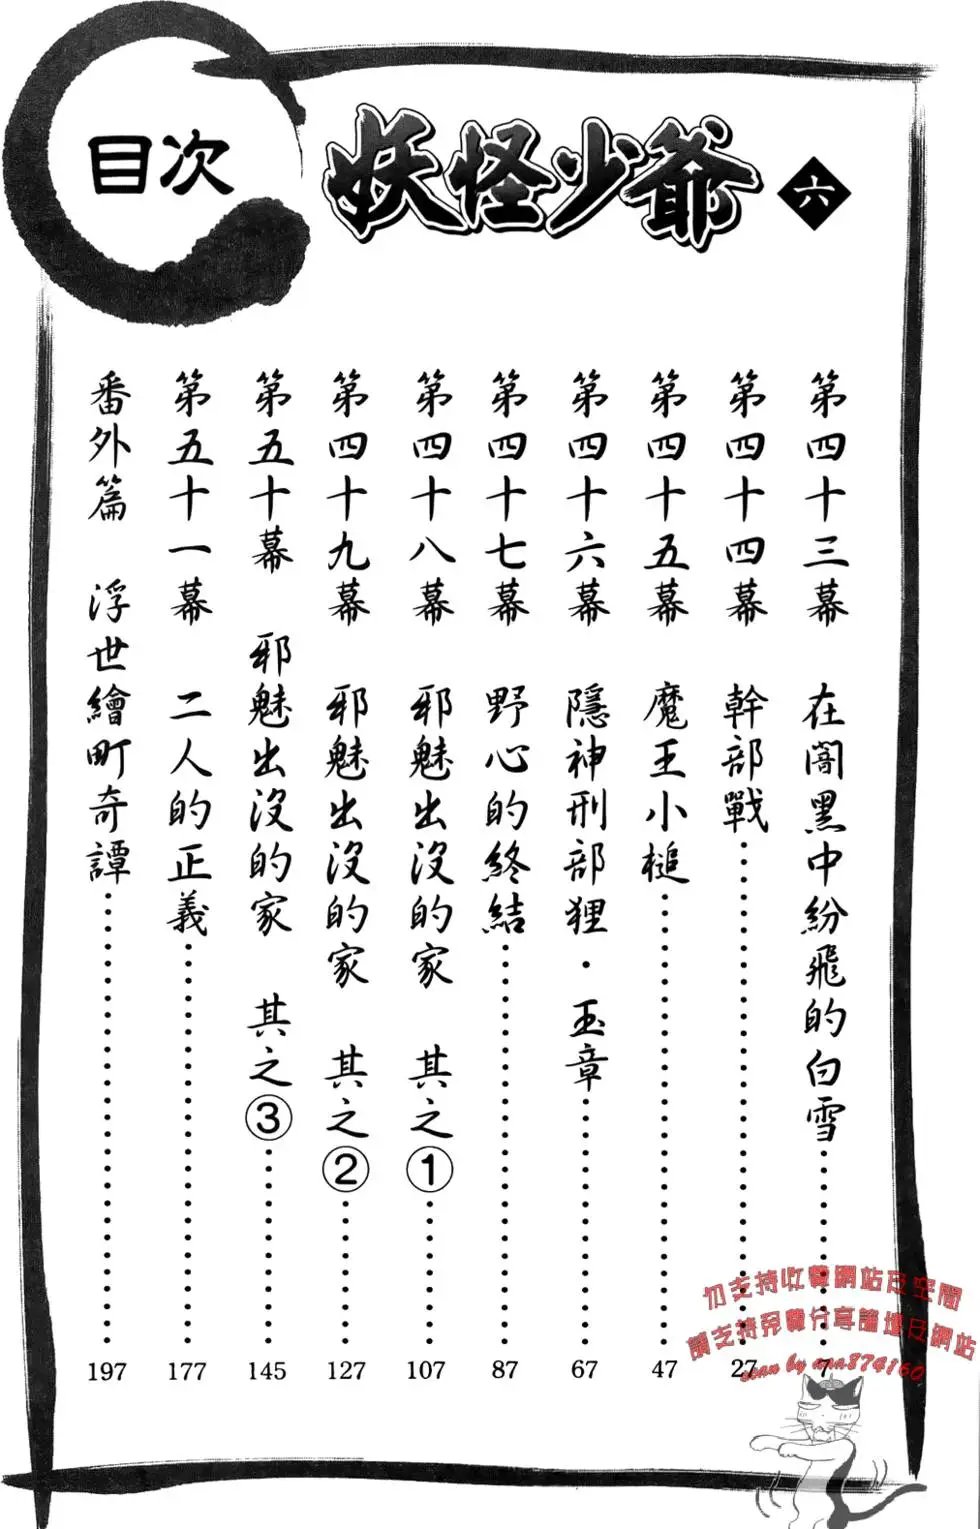 目次
妖怪少爺 六
第四十三幕 在闇黑中紛飛的白雪 7
第四十四幕 幹部戰 27
第四十五幕 魔王小槌 47
第四十六幕 隱神刑部狸・玉章 67
第四十七幕 野心的終結 87
第四十八幕 邪魅出沒的家 其之① 107
第四十九幕 邪魅出沒的家 其之② 127
第五十幕 邪魅出沒的家 其之③ 145
第五十一幕 二人的正義 177
番外篇 浮世繪町奇譚 197
勿支持收費網站及空間
請支持免費分享論壇及網站
scan by ana874160